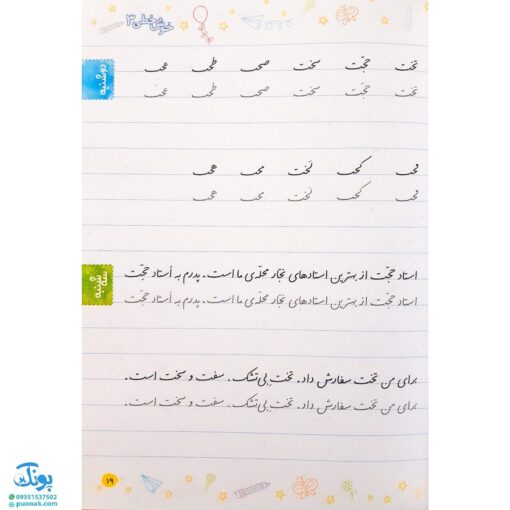 خوش خطی ۳
دوشنبه
تخت حجّت سخت صحـ طحـ عحـ
تخت حجّت سخت صحـ طحـ عحـ
فحـ کحـ لخت محـ هحـ
فحـ کحـ لخت محـ هحـ
سه شنبه
استاد حجّت از بهترین استادهای نجّار محلّه‌ی ما است. پدرم به استاد حجّت
استاد حجّت از بهترین استادهای نجّار محلّه‌ی ما است. پدرم به استاد حجّت
برای من تخت سفارش داد. تختِ بی‌تشک. سفت و سخت است.
برای من تخت سفارش داد. تختِ بی‌تشک. سفت و سخت است.
۱۹
پونک
09351537502
puonak.com